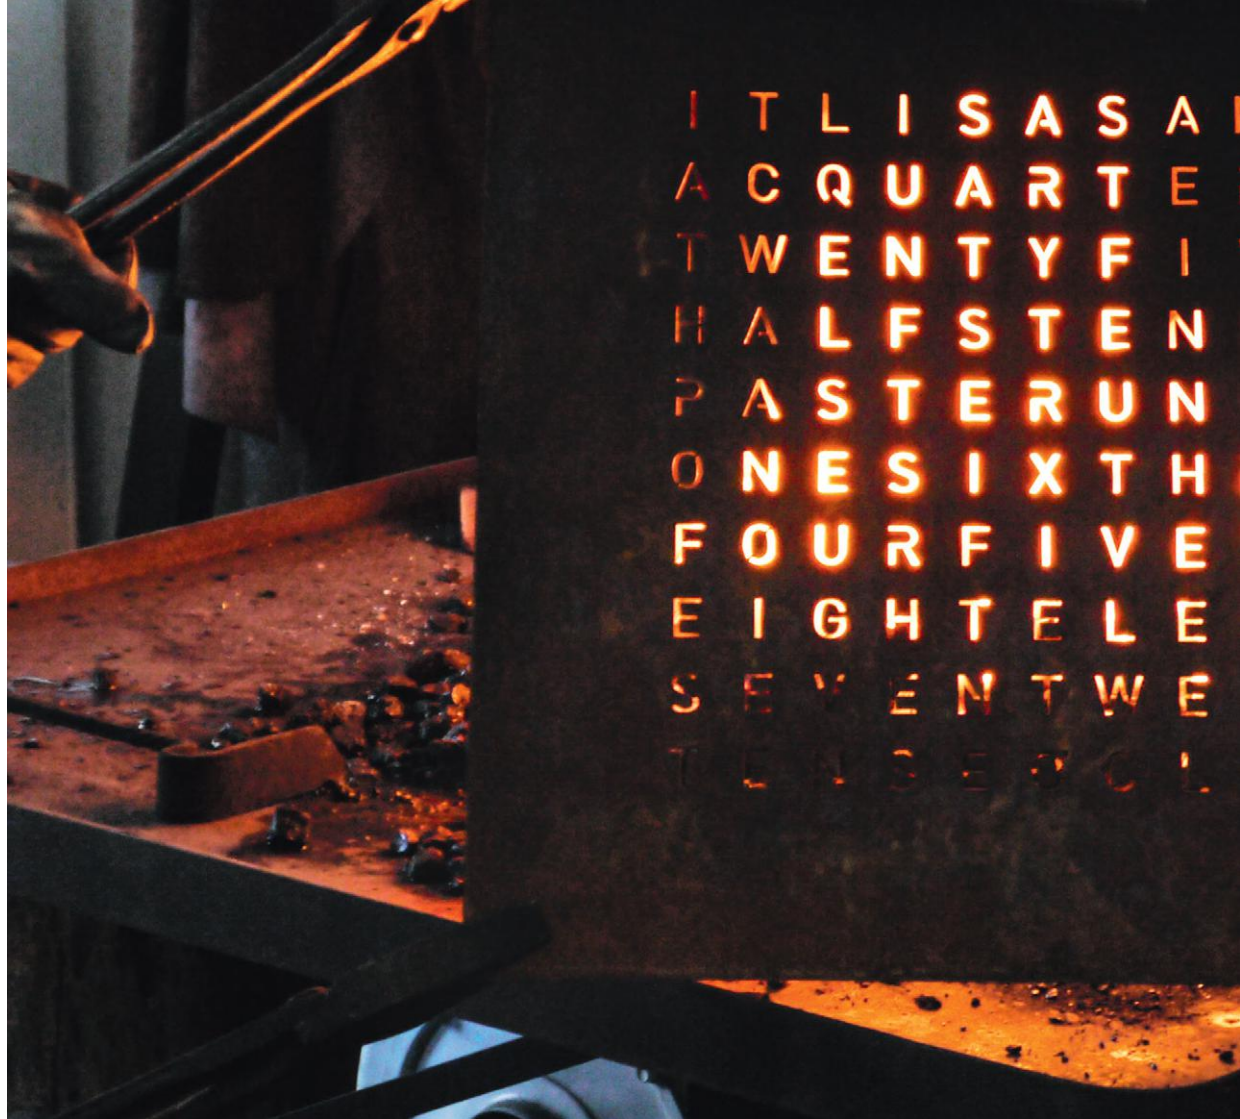 I T L I S A S A
A C Q U A R T E
T W E N T Y F I
H A L F S T E N
P A S T E R U N
O N E S I X T H
F O U R F I V E
E I G H T E L E
S E V E N T W E
T E N S E O C L